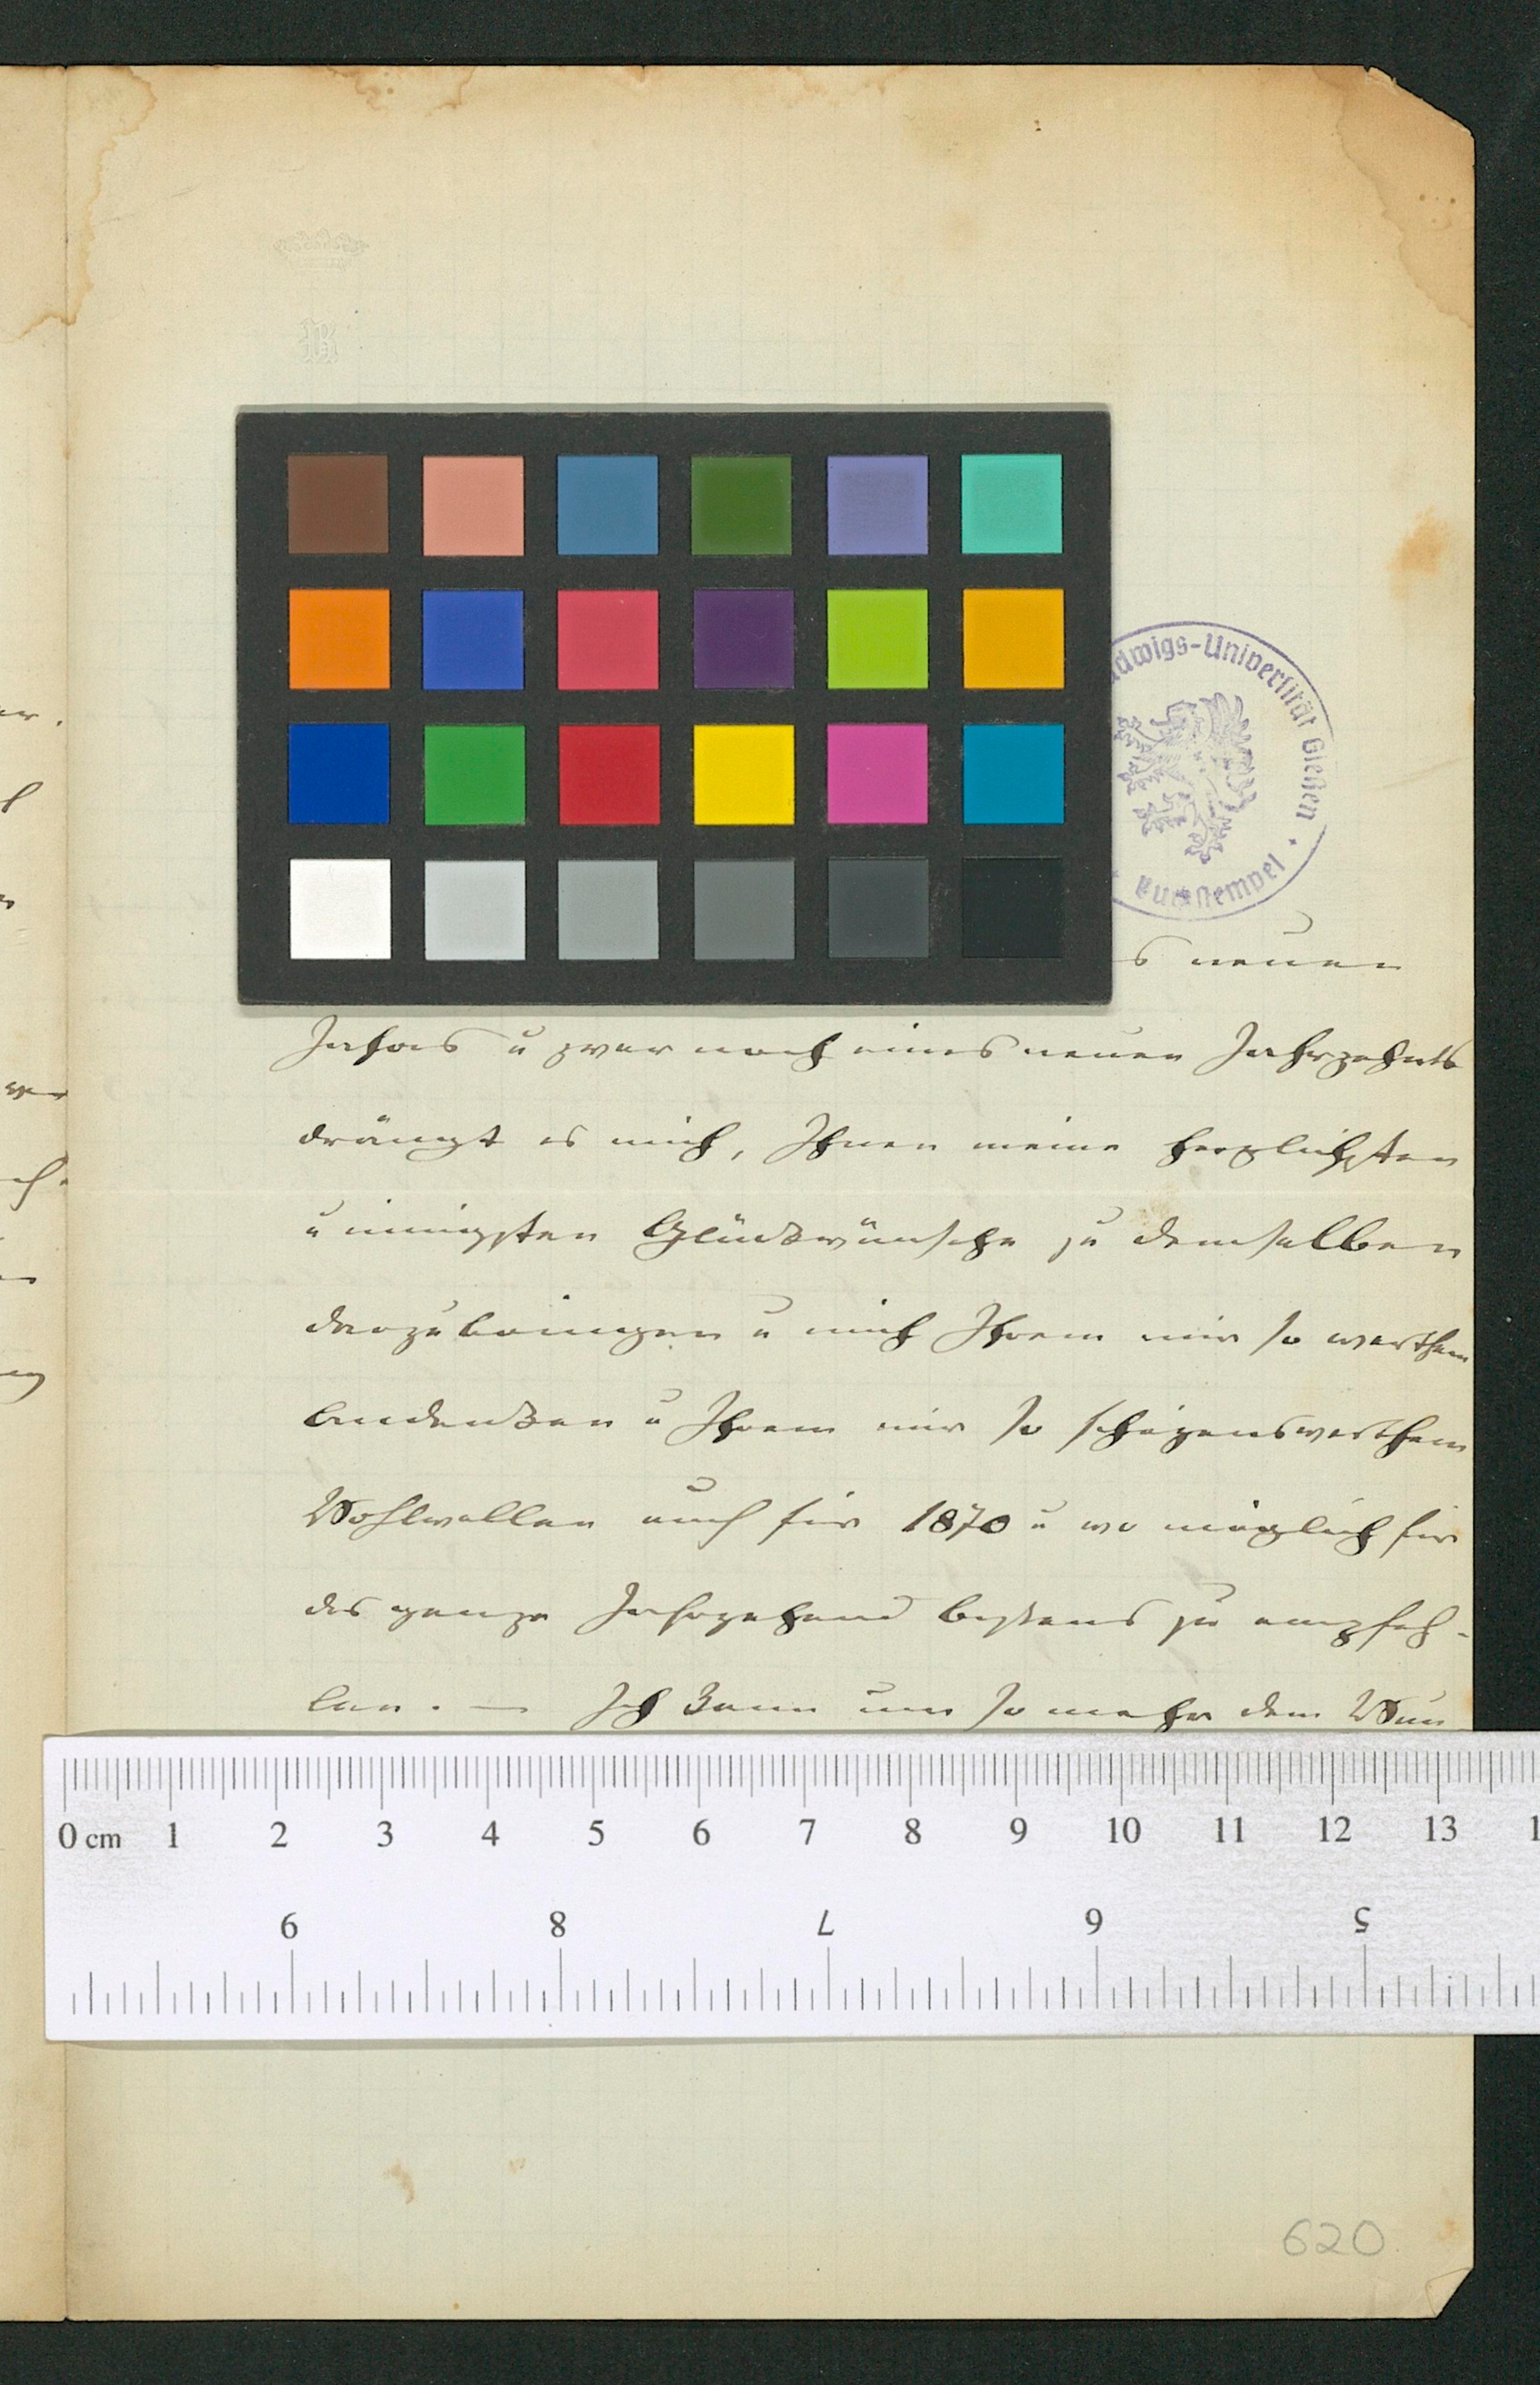 Ludwigs-Universität Gießen
s neuen
Jahres u zwar noch eines neuen Jahrzehnts
drängt es mich, Ihnen meine herzlichsten
u innigsten Glückwünsche zu demselben
darzubringen u mich Ihrem mir so werthem
Andenken u Ihrem mir so schäzenswerthem
Wohlwollen auch für 1870 u wo möglich für
das ganze Jahrzehend bestens zu empfeh-
len. — Ich kann um so mehr dem Wun
0 cm 1 2 3 4 5 6 7 8 9 10 11 12 13 1
9 8 7 6 5
620